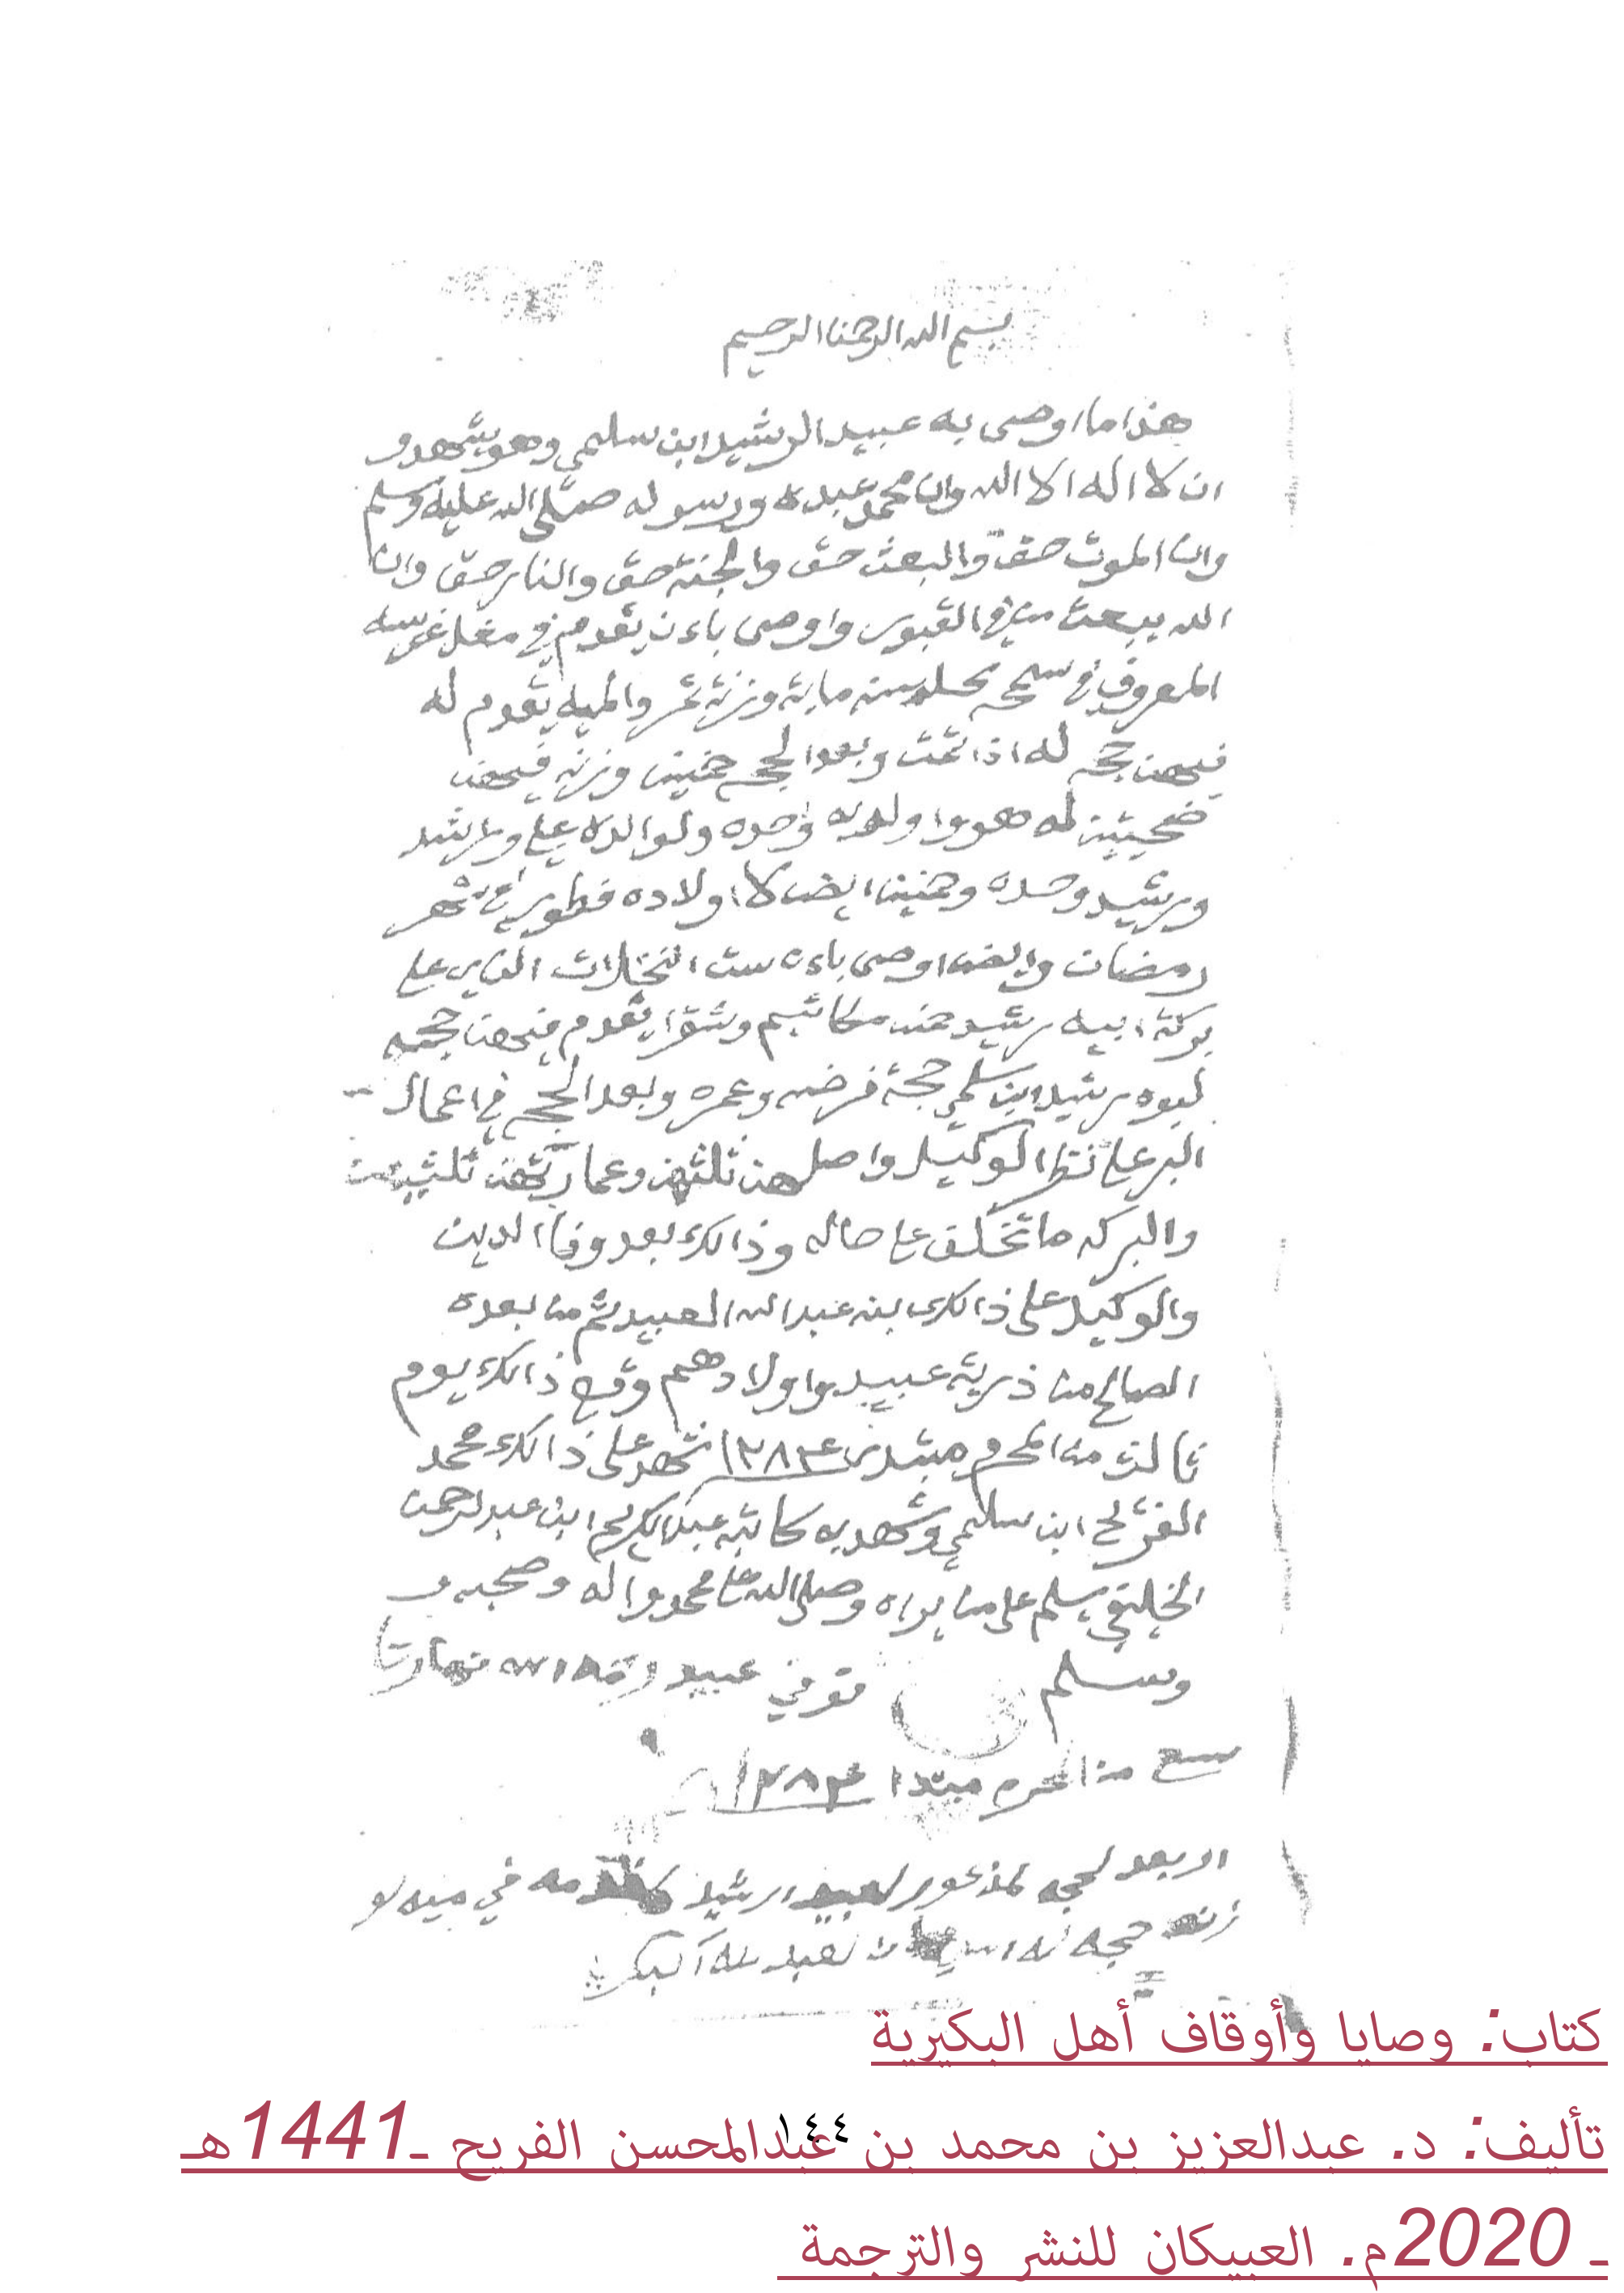 بسم الله الرحمن الرحيم
هذا ما اوصى به عبيد الرشيد ابن سليمي وهو يشهد
ان لا اله الا الله وان محمد عبده ورسوله صلى الله عليه وسلم
وان الموت حق والبعث حق والجنة حق والنار حق وان
الله يبعث من في القبور واوصى باءن يقدم في مغل غرسه
المعروف في سمحه كل سنه ماية وزنة تمر والميه يقدم له
فيهن حجه له اذا تمت وبعد الحج خمسين وزنه فيهن
ضحيتين له هو ووالديه وحده ولوالده علي وراشد
ورشيد وحده وخمسين ايضا لاولاده فطور في شهر
رمضان وايضا اوصى باءه ست النخلات الذي على
بركة ابيه رشيد خمس مكاتيم وشقرا يقدم فيهن حجه
لبوه رشيد ابن سلمي حجة فرضه وعمره وبعد الحج في اعمال
البر على نظر الوكيل واصلهن ثلثهن وعمارتهن ثلثين
والبركه ما تخلف على حاله وذالك بعد وفا الدين
والوكيل على ذالك ابنه عبدالله العبيد ثم من بعده
الصالح من ذرية عبيد واولادهم وقع ذالك يوم
ثالث من المحرم مبتدى ١٢٨٤ شهد على ذالك محمد
الفريح ابن سليمي وشهد به كاتبه عبدالكريم ابن عبدالرحمن
الخليفي يسلم على من يراه وصلى الله على محمد واله وصحبه
وسلم توفي عبيد نهار
سبع من المحرم مبتدا ١٢٨٤
بعد لحجه لمذكور لعبيد ارشيد في
حجه لعبد لله البكر
كتاب: وصايا وأوقاف أهل البكيرية
١٤٤
تأليف: د. عبدالعزيز بن محمد بن عبدالمحسن الفريح ـ1441هـ
ـ 2020م. العبيكان للنشر والترجمة